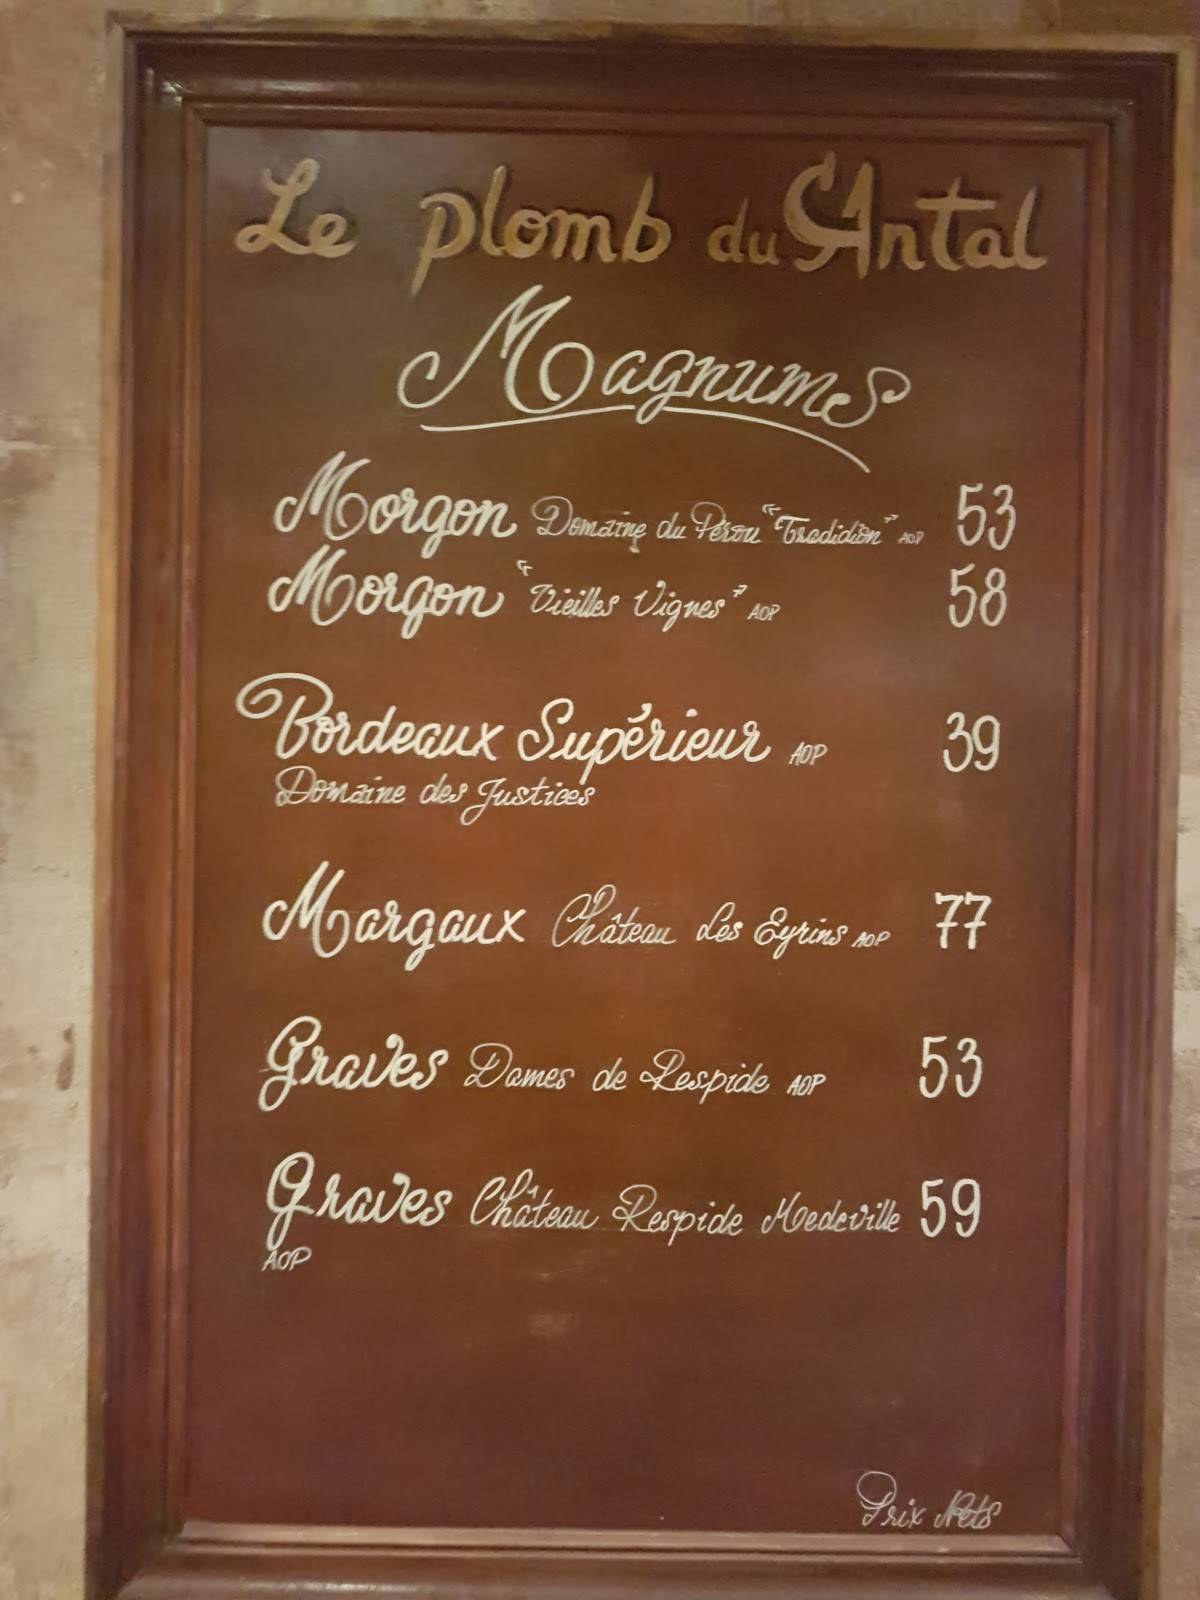 Le plomb du Cantal
Magnums
Morgon Domaine du Pérou "Tradidion" AOP 53
Morgon "Vieilles Vignes" AOP 58
Bordeaux Supérieur AOP 39
Domaine des Justices
Margaux Château Les Eyrins AOP 77
Graves Dames de Respide AOP 53
Graves Château Respide Medeville 59
AOP
Prix Nets